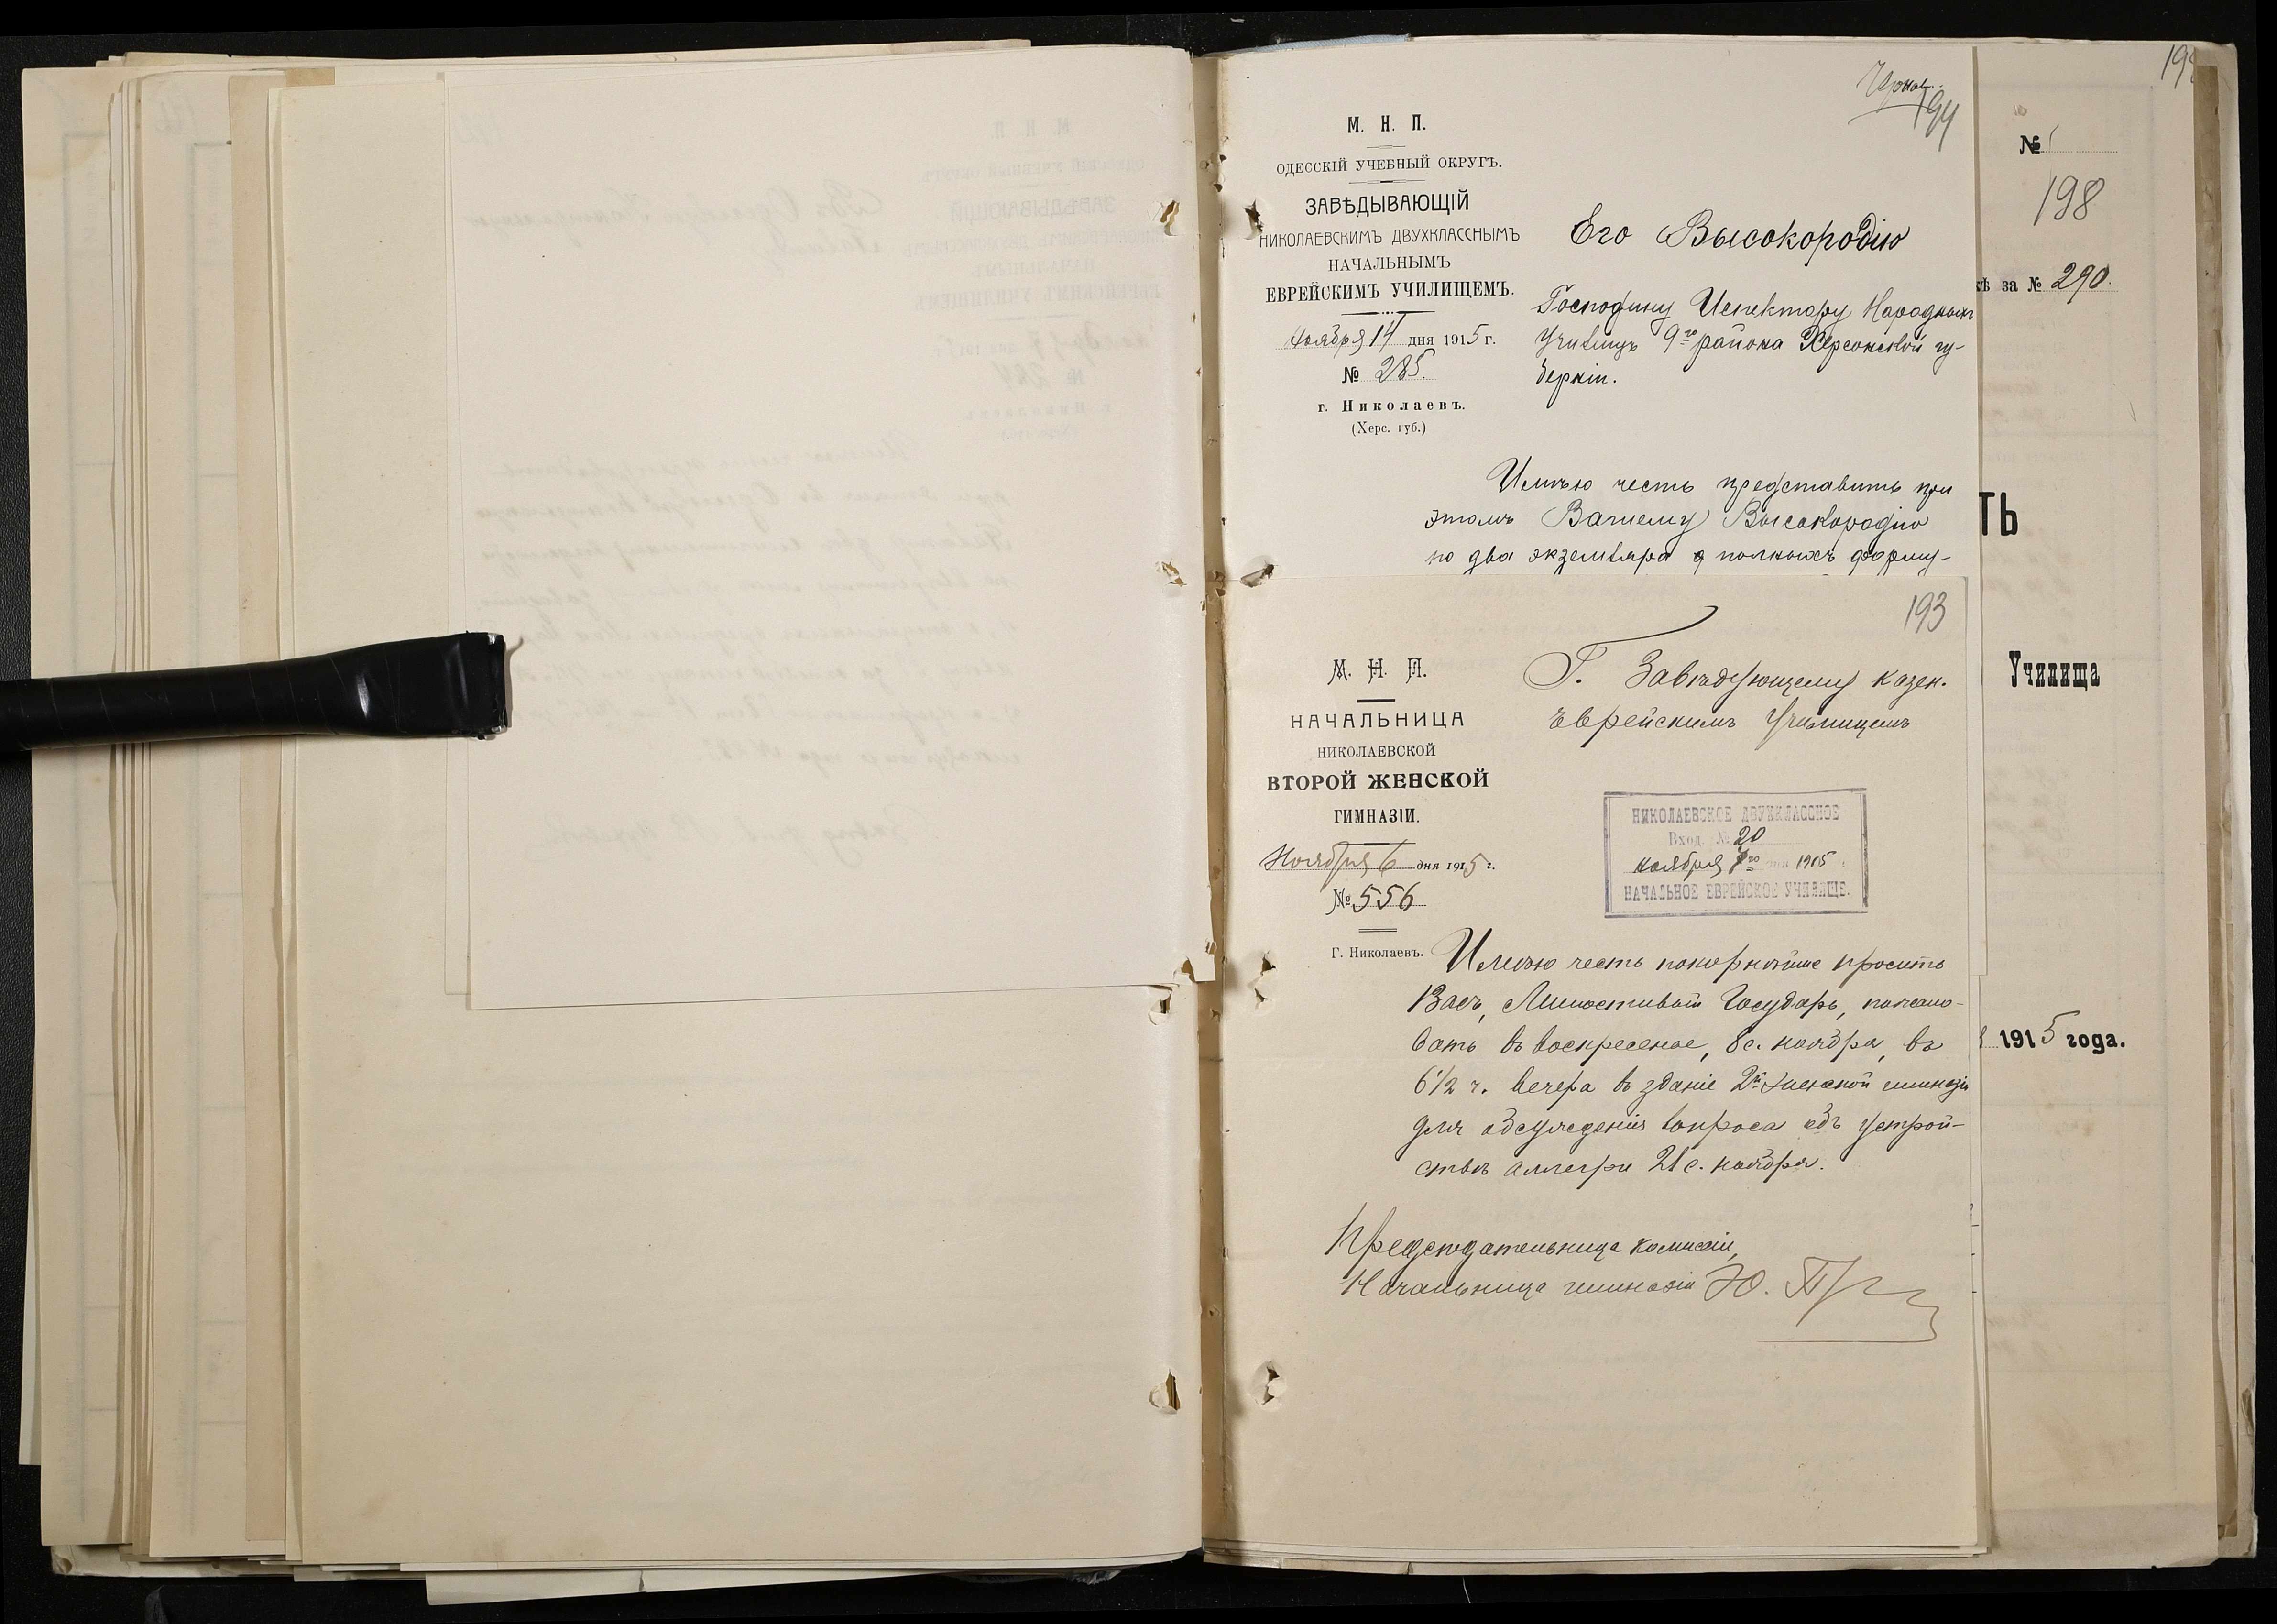 194
М. Н. П.
ОДЕССКІЙ УЧЕБНЫЙ ОКРУГЪ.
ЗАВѢДЫВАЮЩІЙ
НИКОЛАЕВСКИМЪ ДВУХКЛАССНЫМЪ
НАЧАЛЬНЫМЪ
ЕВРЕЙСКИМЪ УЧИЛИЩЕМЪ.
Ноября 14 дня 1915 г.
№ 285.
г. Николаевъ.
(Херс. губ.)
Его Высокородію
Господину Испектору Народныхъ
Училищъ 9го района Херсонской гу-
берніи.
Имѣю честь представить при
этомъ Вашему Высокородію
по два экземпляра полныхъ форму-
193
М. Н. П.
НАЧАЛЬНИЦА
НИКОЛАЕВСКОЙ
ВТОРОЙ ЖЕНСКОЙ
ГИМНАЗІИ.
Ноября 6 дня 1915 г.
№ 556
Г. Николаевъ.
Г. Завѣдующему казен.
Еврейскимъ Училищемъ
НИКОЛАЕВСКОЕ ДВУХКЛАССНОЕ
Вход. № 20
ноября 7го дня 1915
НАЧАЛЬНОЕ ЕВРЕЙСКОЕ УЧИЛИЩЕ.
Имѣю честь покорнѣйше просить
Васъ, Милостивый Государь, пожало-
вать въ воскресенье, 8 с. ноября, въ
6 1/2 ч. вечера въ зданіе 2й женской гимназіи
для обсужденія вопроса объ устрой-
ствѣ аллегри 21 с. ноября.
Предсѣдательница комиссіи,
Начальница гимназіи Ю.
№
198
за № 290.
ТЬ
Училища
1915 года.